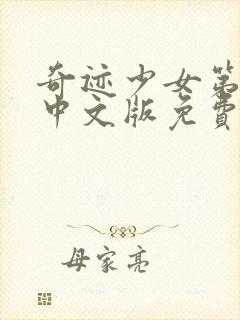 奇迹少女第
中文版免费
母家亮